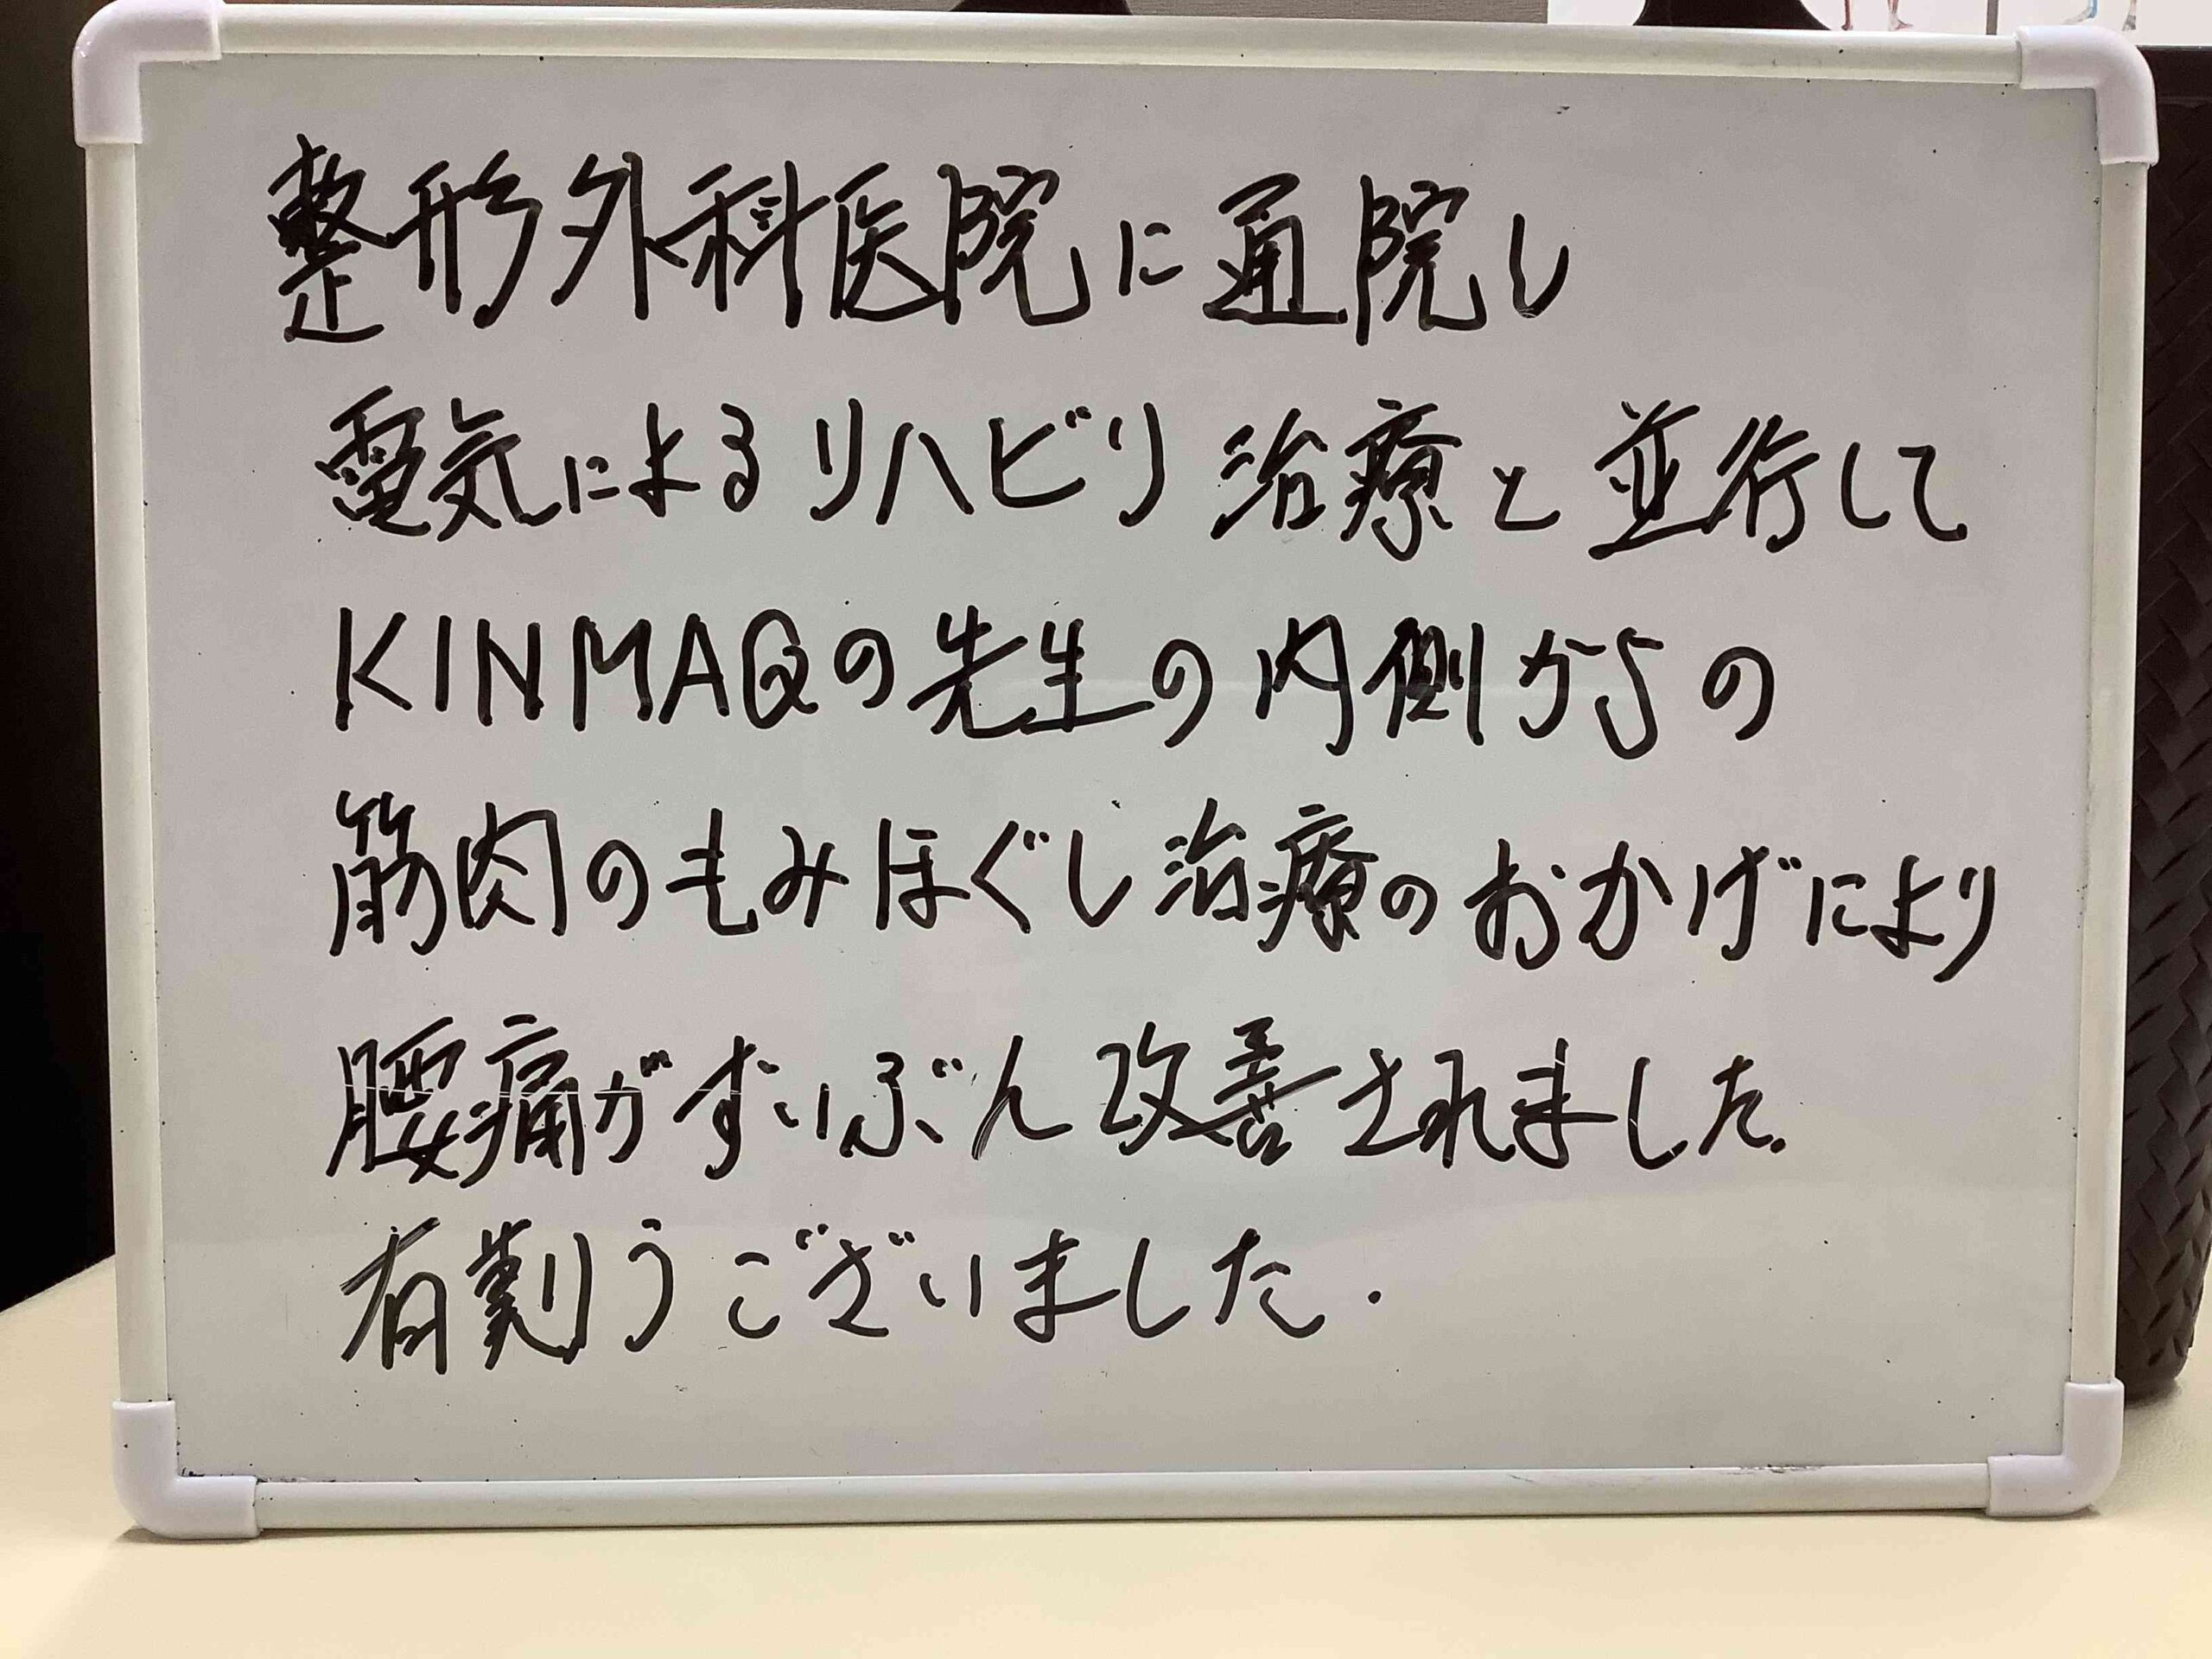 整形外科医院に通院し
電気によるリハビリ治療と並行して
KINMAQの先生の内側からの
筋肉のもみほぐし治療のおかげにより
腰痛がずいぶん改善されました。
有難うございました.